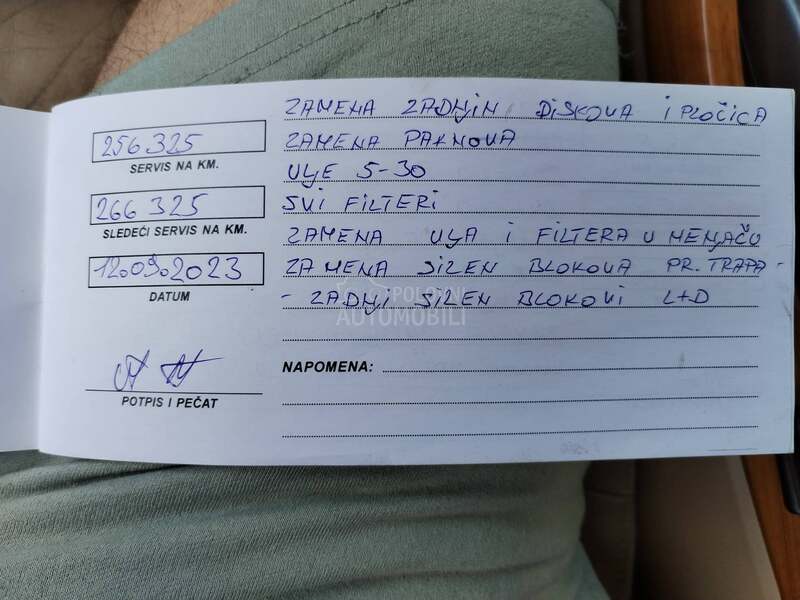 256 325
SERVIS NA KM.
266 325
SLEDEĆI SERVIS NA KM.
12.09.2023
DATUM
POTPIS I PEČAT
ZAMENA ZADNJIH DISKOVA I PLOČICA
ZAMENA PAKNOVA
ULJE 5-30
SVI FILTERI
ZAMENA ULJA I FILTERA U MENJAČU
ZAMENA SILEN BLOKOVA PR. TRAPA -
- ZADNJI SILEN BLOKOVI L+D
NAPOMENA:
POLOVNI
AUTOMOBILI